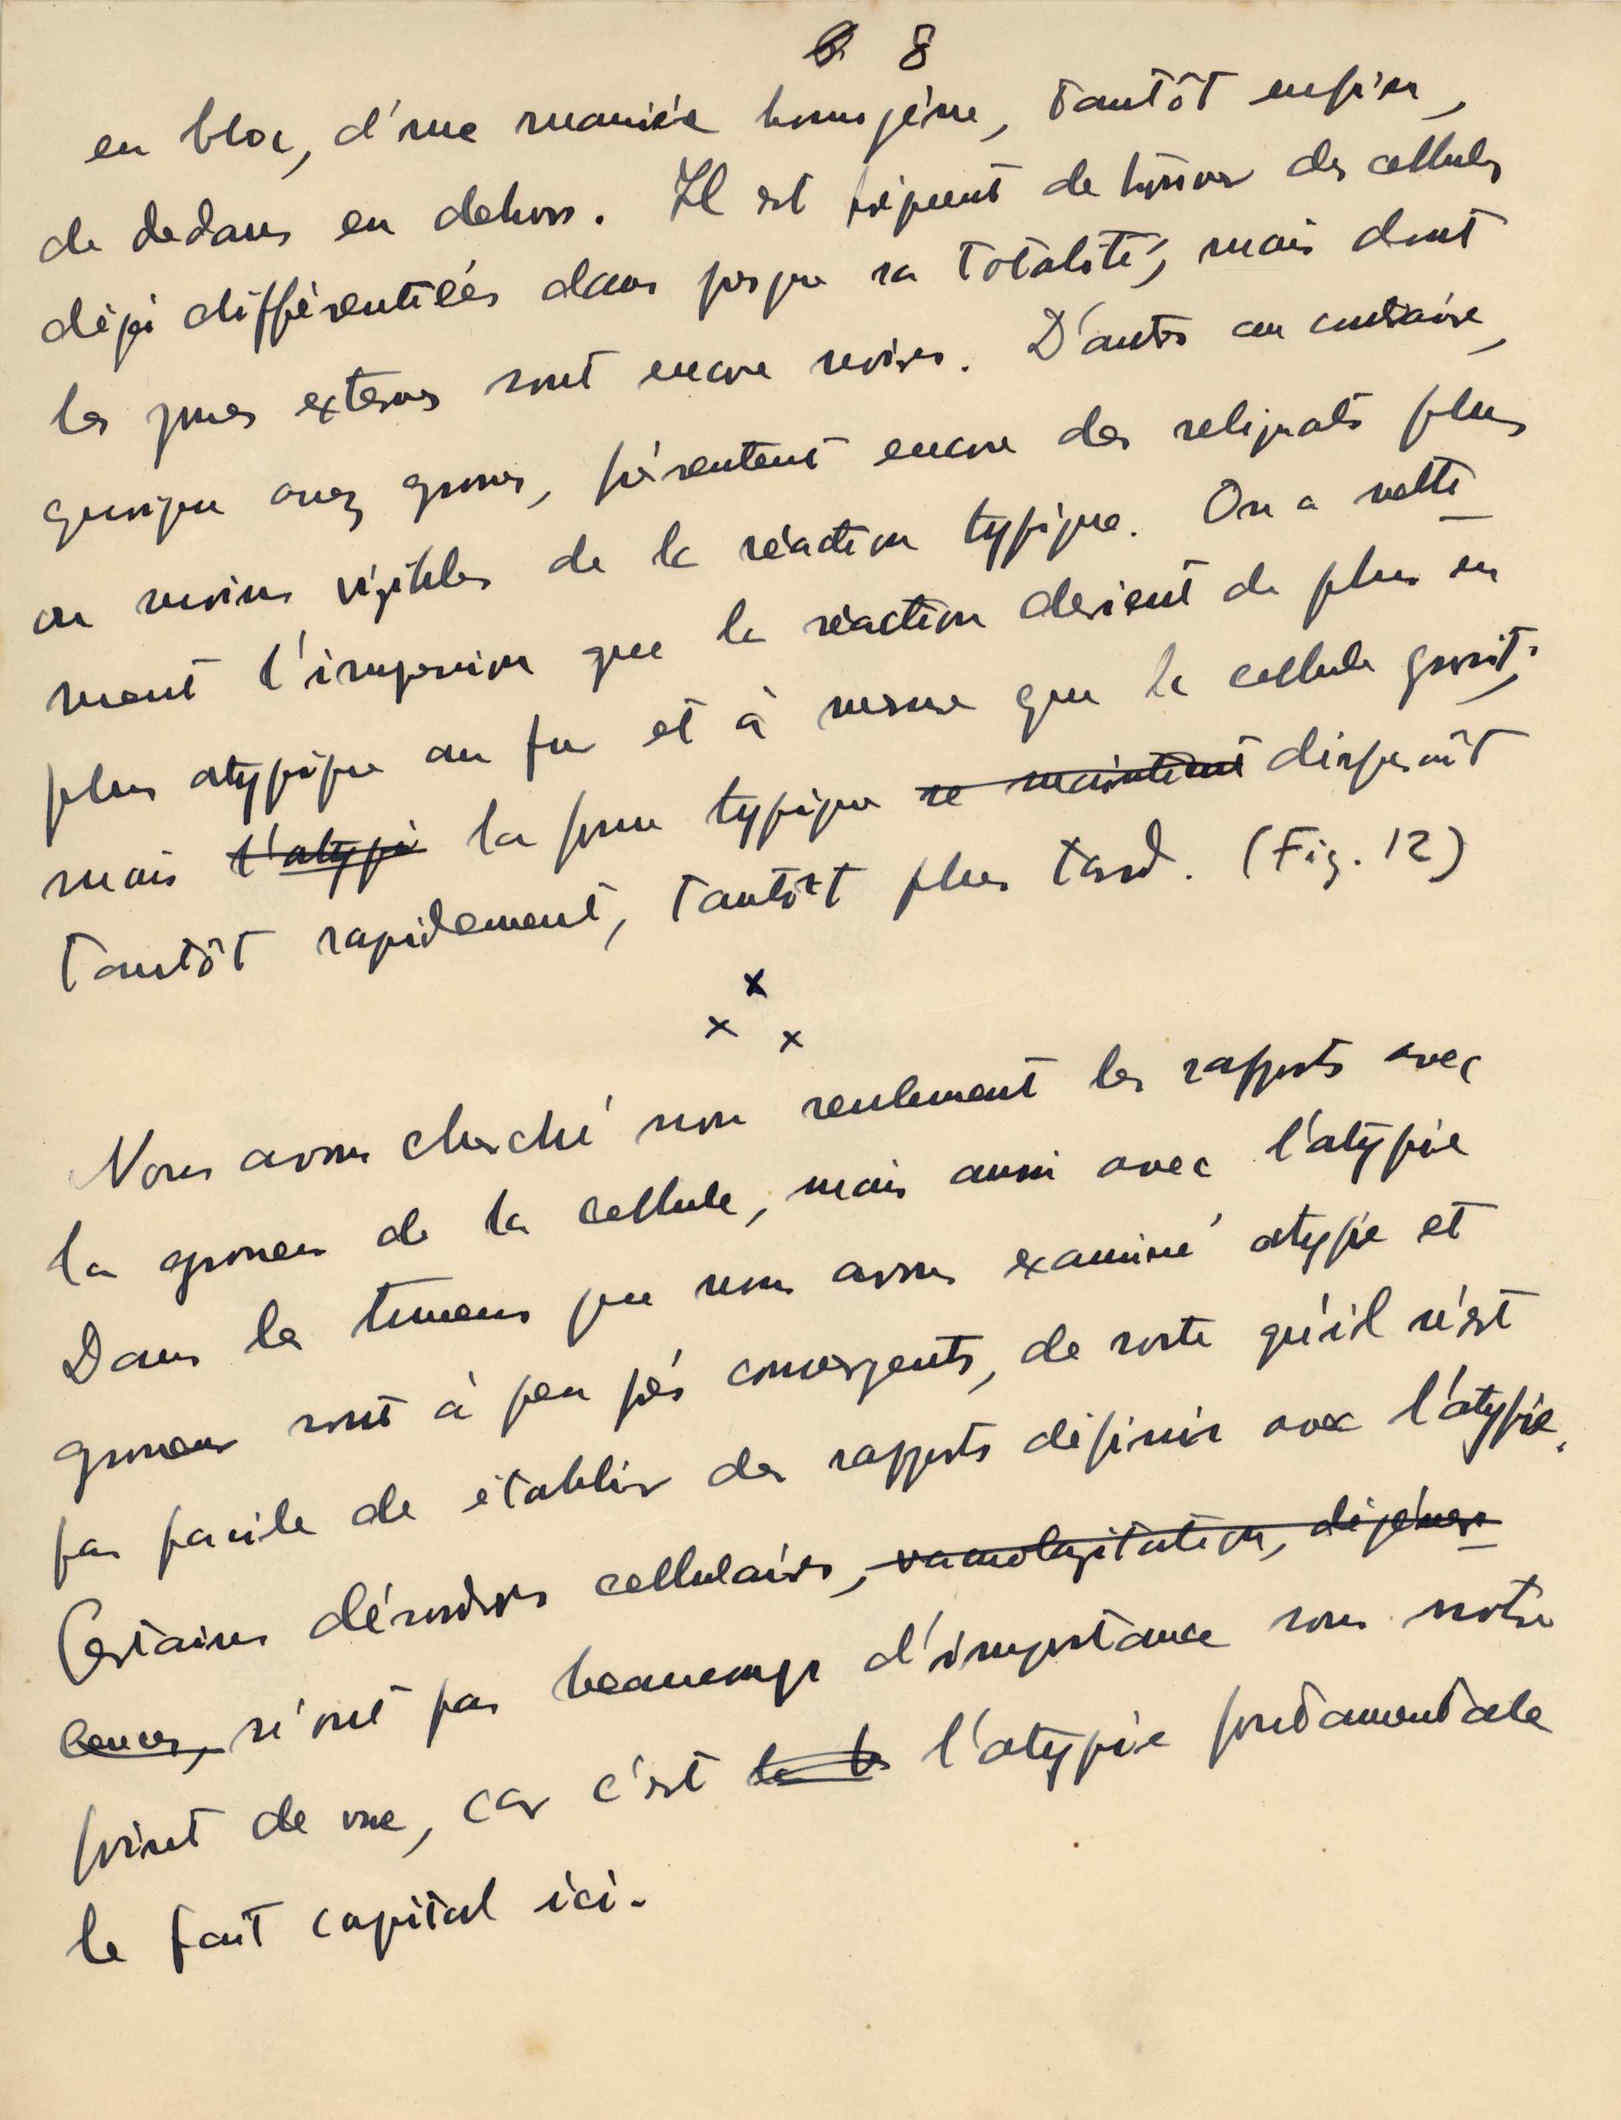 8
en bloc, d'une manière homogène, tantôt enfin,
de dedans en dehors. Il est fréquent de trouver des cellules
déjà différentiées dans presque sa totalité, mais dont
les zones externes sont encore noires. D'autres au contraire,
quoique assez grosses, présentent encore des reliquats plus
ou moins visibles de la réaction typique. On a nette-
ment l'impression que la réaction devient de plus en
plus atypique au fur et à mesure que la cellule grossit;
mais l'atypi la forme typique se maintient disparaît
tantôt rapidement, tantôt plus tard. (Fig. 12)
x
x x
Nous avons cherché non seulement les rapports avec
la grosseur de la cellule, mais aussi avec l'atypie
Dans les tumeurs que nous avons examiné atypie et
grosseur sont à peu près convergents, de sorte qu'il n'est
pas facile de établir des rapports définis avec l'atypie.
Certains désordres cellulaires, dégénéres-
cences, n'ont pas beaucoup d'importance sous notre
point de vue, car c'est l'atypie fondamentale
le fait capital ici.